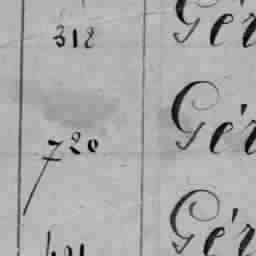 312 Gér
720 Gér
Gér